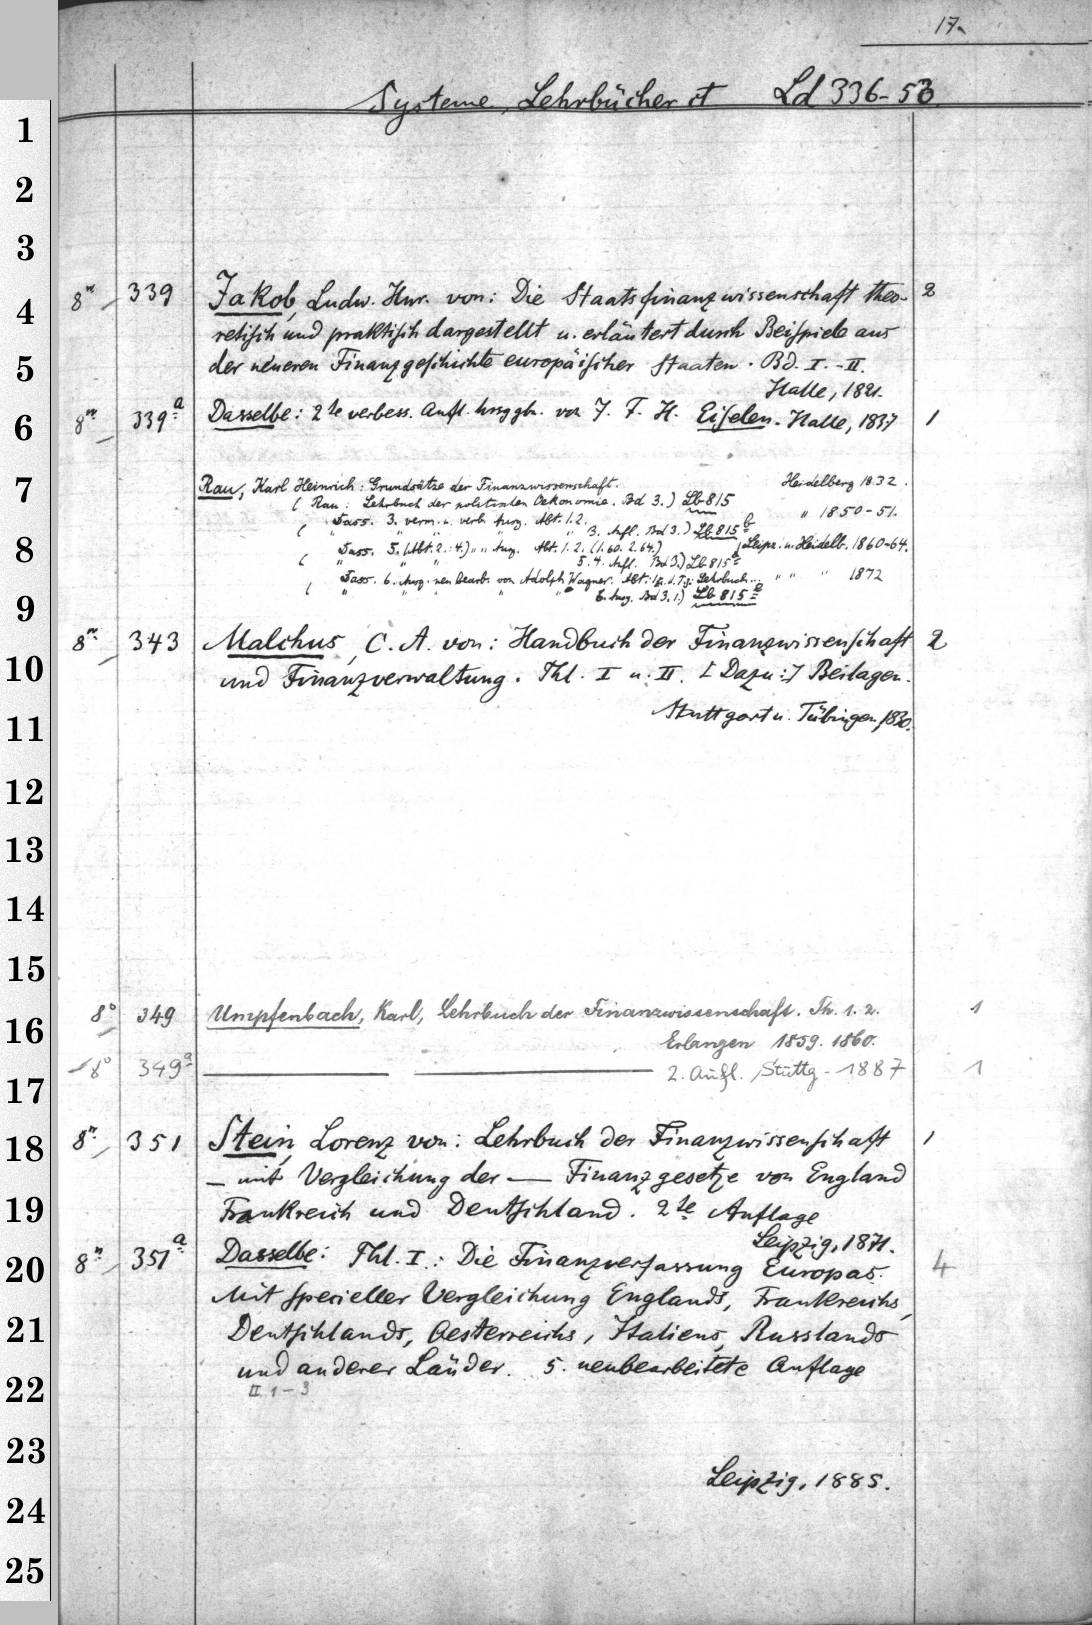 17.
Systeme, Lehrbücher ct Ld 336-53
1
2
3
8° 339 Jakob, Ludw. Hnr. von: Die Staatsfinanzwissenschaft theo- 2
4
retisch und praktisch dargestellt u. erläutert durch Beispiele aus
5
der neueren Finanzgeschichte europäischer Staaten. Bd. I.-II.
Halle, 1821.
6
8° 339a Dasselbe: 2te verbess. Aufl. hrsggbn. von J. F. H. Eiselen. Halle, 1837 1
7
Rau, Karl Heinrich: Grundsätze der Finanzwissenschaft. Heidelberg 1832.
( Rau: Lehrbuch der politischen Oekonomie. Bd 3.) Lb 815
" Dass. 3. verm. u. verb. Ausg. Abt. 1. 2. " 1850-51.
( " " " 3. Aufl. Bd 3.) Lb 815 b
8
Dass. 5. (Abt. 2.: 4.) " " Ausg. Abt. 1. 2. (1.60. 2.64.) Leipz. u. Heidelb. 1860-64.
( " " " 5. 4. Aufl. Bd 3.) Lb 815
Dass. 6. Ausg. neu bearb. von Adolph Wagner. Abt. 1 Lehrbuch... " " " 1872
9
( " " " " " 6. Ausg. Bd 3. 1.) Lb 815 e
8° 343 Malchus, C. A. von: Handbuch der Finanzwissenschaft 2
10
und Finanzverwaltung. Thl. I u. II. [Dazu:] Beilagen.
11
Stuttgart u. Tübingen, 1830.
12
13
14
15
8° 349 Umpfenbach, Karl, Lehrbuch der Finanzwissenschaft. Th. 1. 2. 1
16
Erlangen 1859. 1860.
8° 349a ——— ——— 2. Aufl. Stuttg. 1887 1
17
8° 351 Stein, Lorenz von: Lehrbuch der Finanzwissenschaft 1
18
— mit Vergleichung der — Finanzgesetze von England
19
Frankreich und Deutschland. 2te Auflage
Leipzig, 1871.
8° 351a Dasselbe: Thl. I.: Die Finanzverfassung Europas. 4
20
Mit specieller Vergleichung Englands, Frankreichs,
21
Deutschlands, Oesterreichs, Italiens, Russlands
und anderer Länder. 5. neubearbeitete Auflage
22
II 1-3
23
Leipzig, 1885.
24
25